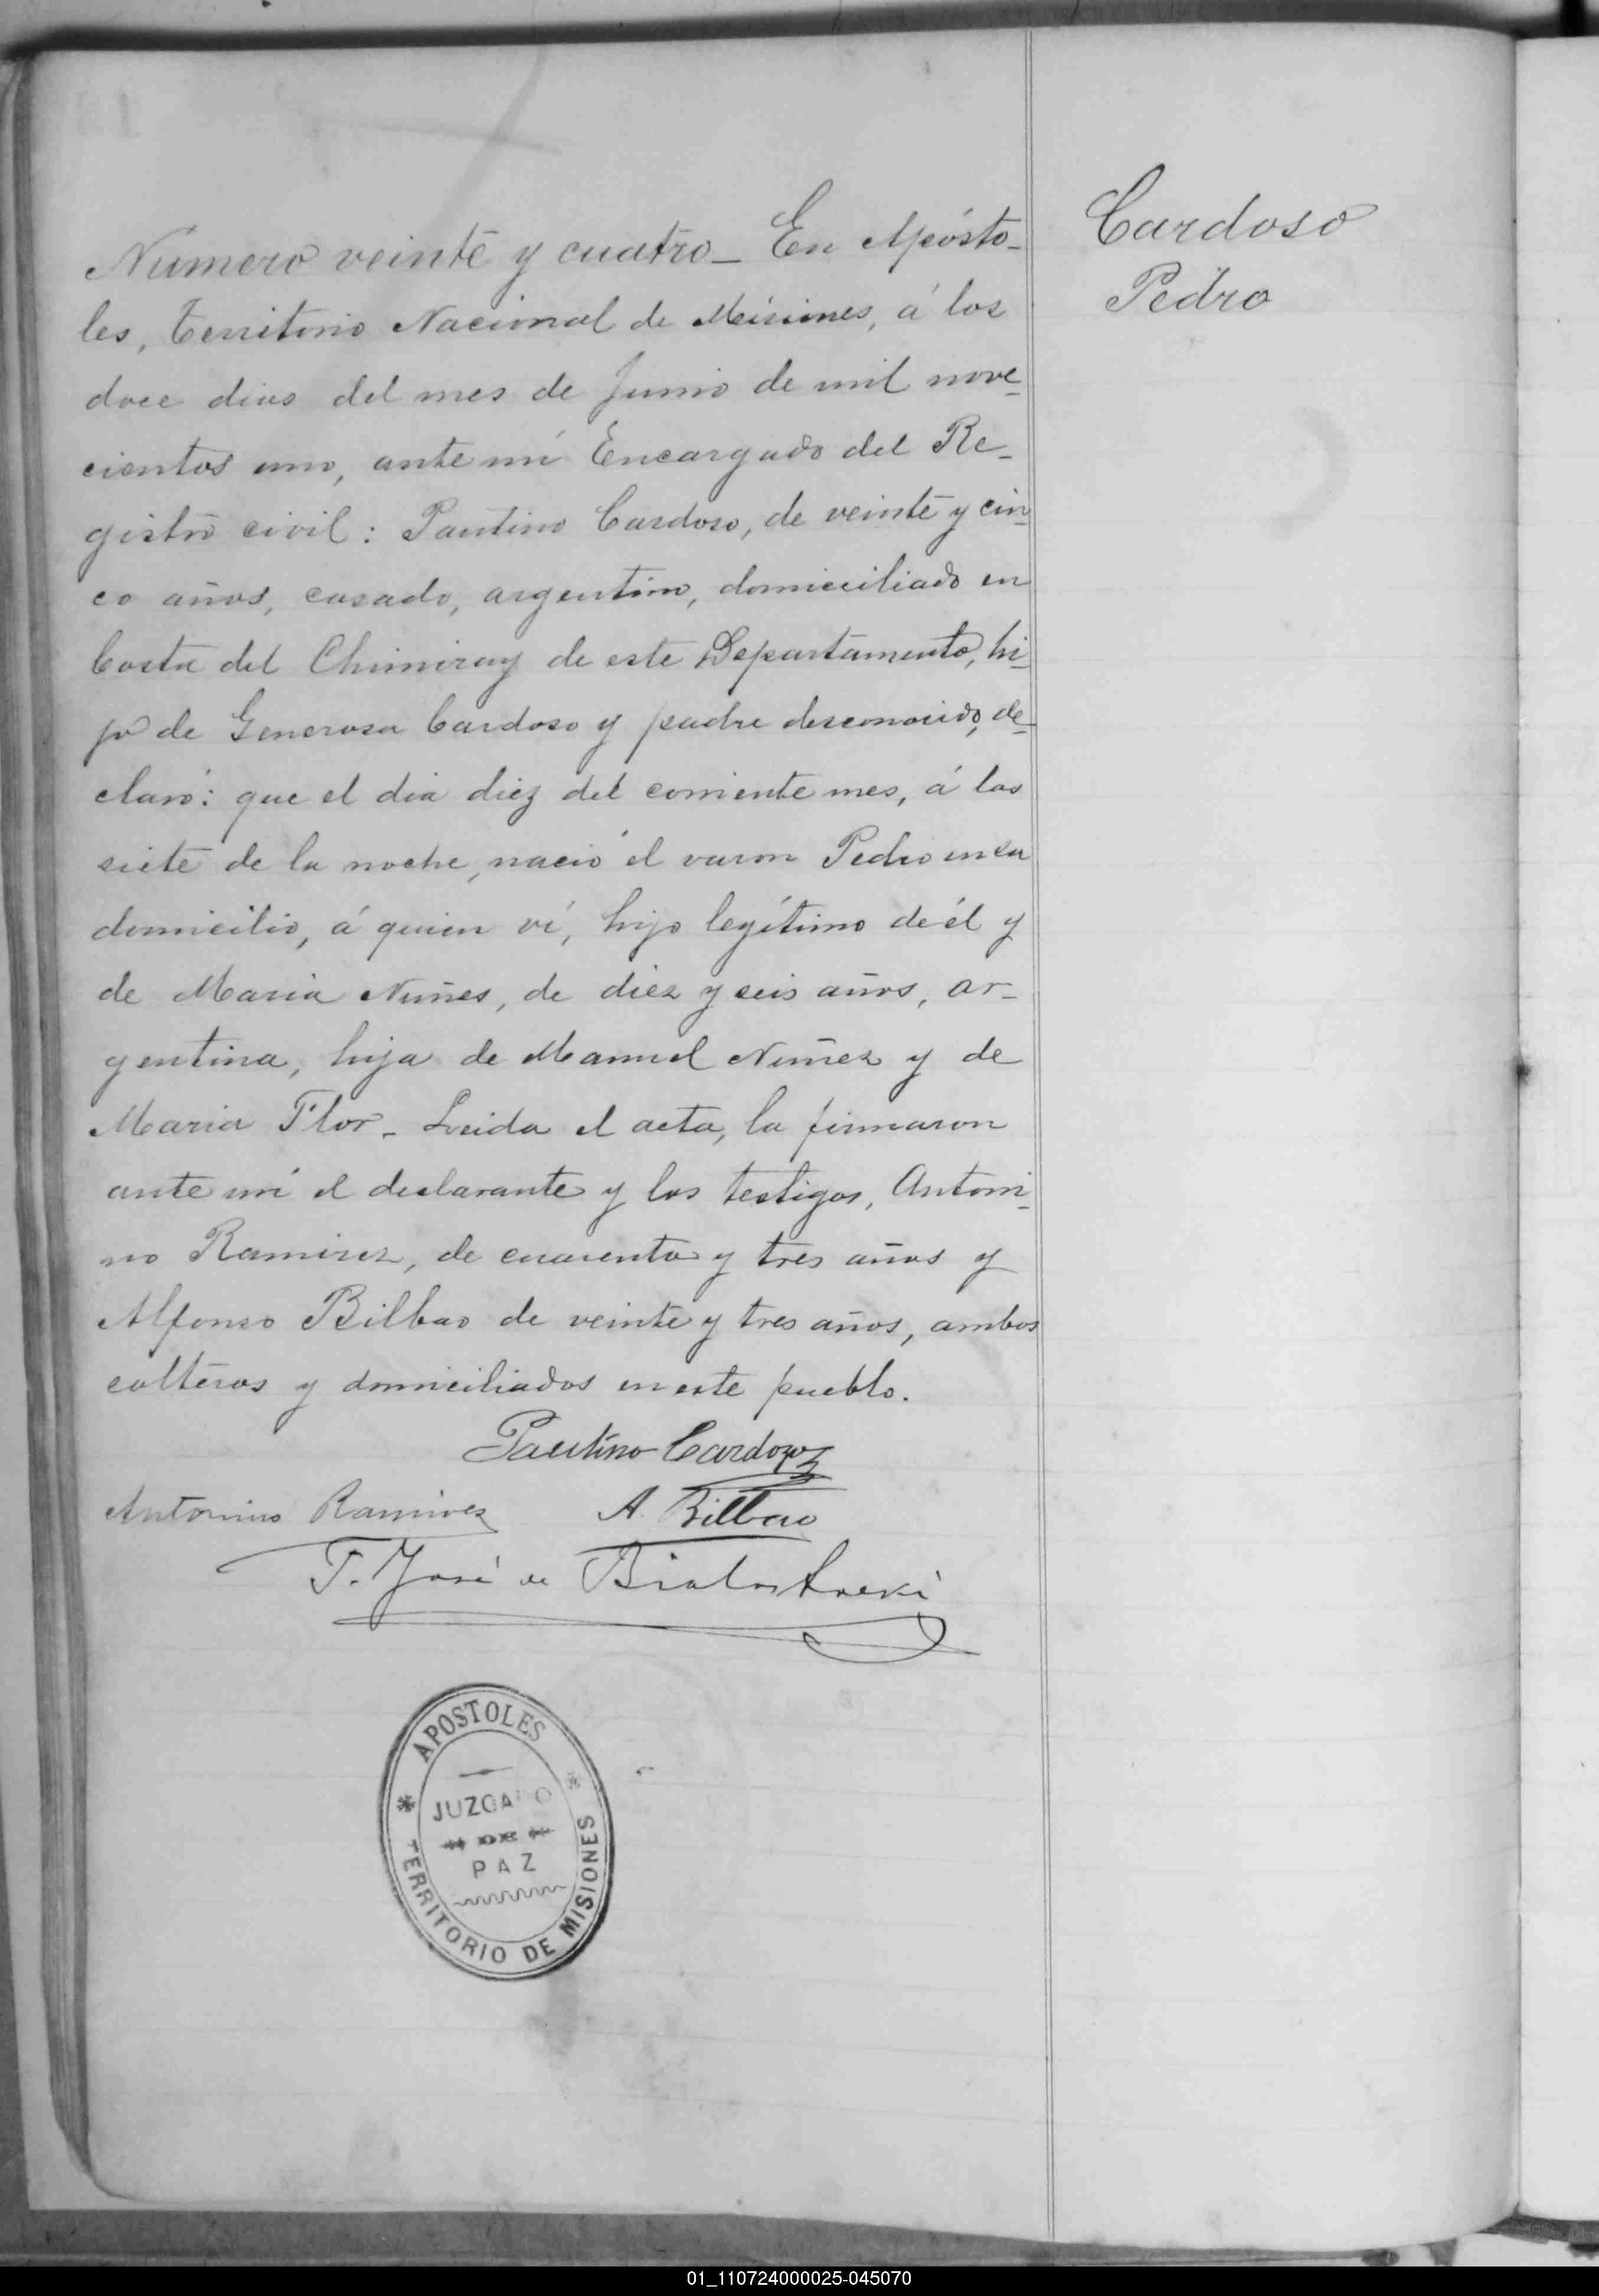 Cardoso
Pedro
Número veinte y cuatro_ En Apósto-
les, Territorio Nacional de Misiones, á los
doce dias del mes de Junio de mil nove-
cientos uno, ante mí Encargado del Re-
gistro civil: Pautino Cardoso, de veinte y cin-
co años, casado, argentino, domiciliado en
Costa del Chimiray de este Departamento, hi-
jo de Generosa Cardoso y padre desconocido, de-
claró: que el dia diez del corriente mes, á las
siete de la noche, nació el varon Pedro en su
domicilio, á quien ví, hijo legítimo de él y
de Maria Nuñes, de diez y seis años, ar-
gentina, hija de Manuel Nuñez y de
Maria Flor_ Leida el acta, la firmaron
ante mí el declarante y los testigos, Antoni-
no Ramirez, de cuarenta y tres años y
Alfonso Bilbao de veinte y tres años, ambos
solteros y domiciliados en este pueblo.
Pautino Cardozo
Antonino Ramirez A. Bilbao
F. José de Bialostocki
APOSTOLES
JUZGADO
DE
PAZ
TERRITORIO DE MISIONES
01_110724000025-045070